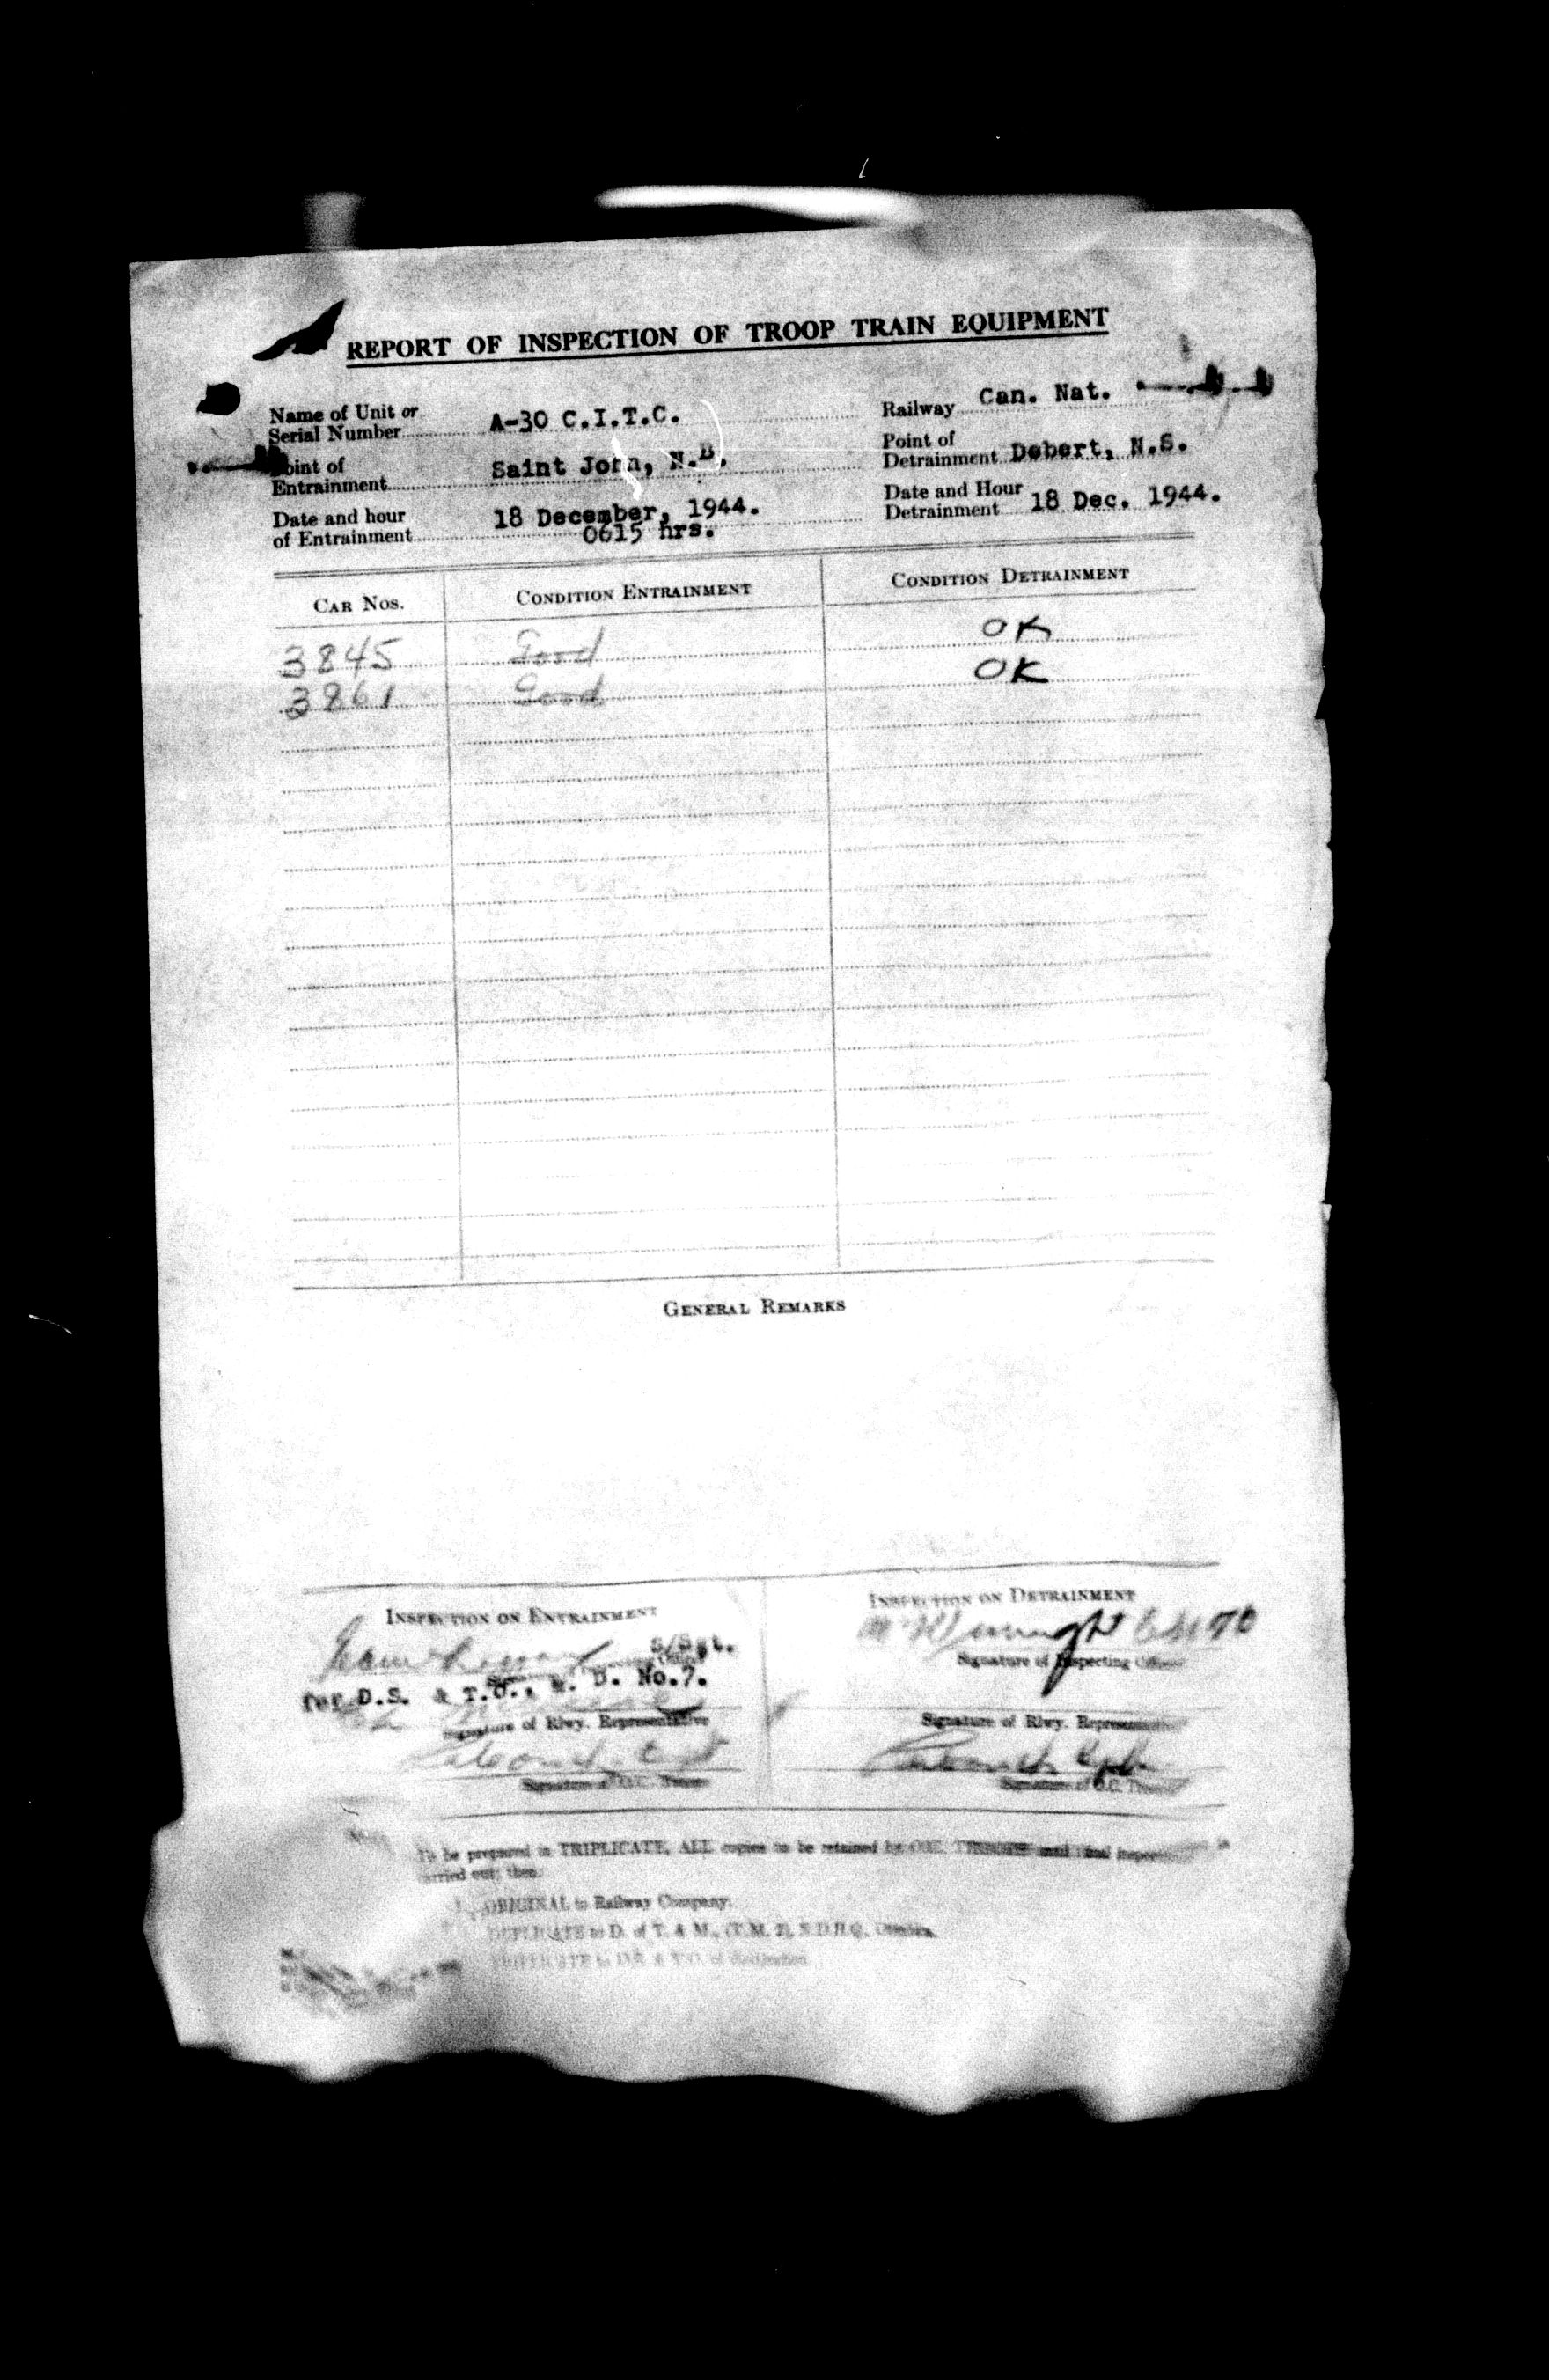 REPORT OF INSPECTION OF TROOP TRAIN EQUIPMENT
Name of Unit or Serial Number A-30 C.I.T.C.
Railway Can. Nat.
Point of Entrainment Saint John, N.B.
Point of Detrainment Debert, N.S.
Date and hour of Entrainment 18 December, 1944. 0615 hrs.
Date and Hour Detrainment 18 Dec. 1944.
CAR NOS. CONDITION ENTRAINMENT CONDITION DETRAINMENT
3845 Good OK
3961 Good OK
GENERAL REMARKS
INSPECTION ON ENTRAINMENT
S/Sgt.
for D.S. & T.O., M. D. No.7.
Signature of Rlwy. Representative
Signature of O.C. Troops
INSPECTION ON DETRAINMENT
Signature of Inspecting Officer
Signature of Rlwy. Representative
Signature of O.C. Troops
To be prepared in TRIPLICATE, ALL copies to be retained by O.C. TROOPS until final inspection is
carried out; then:
ORIGINAL to Railway Company.
DUPLICATE to D. of T. & M., (T.M. 2), N.D.H.Q., Ottawa.
TRIPLICATE to D.S. & T.O. of destination